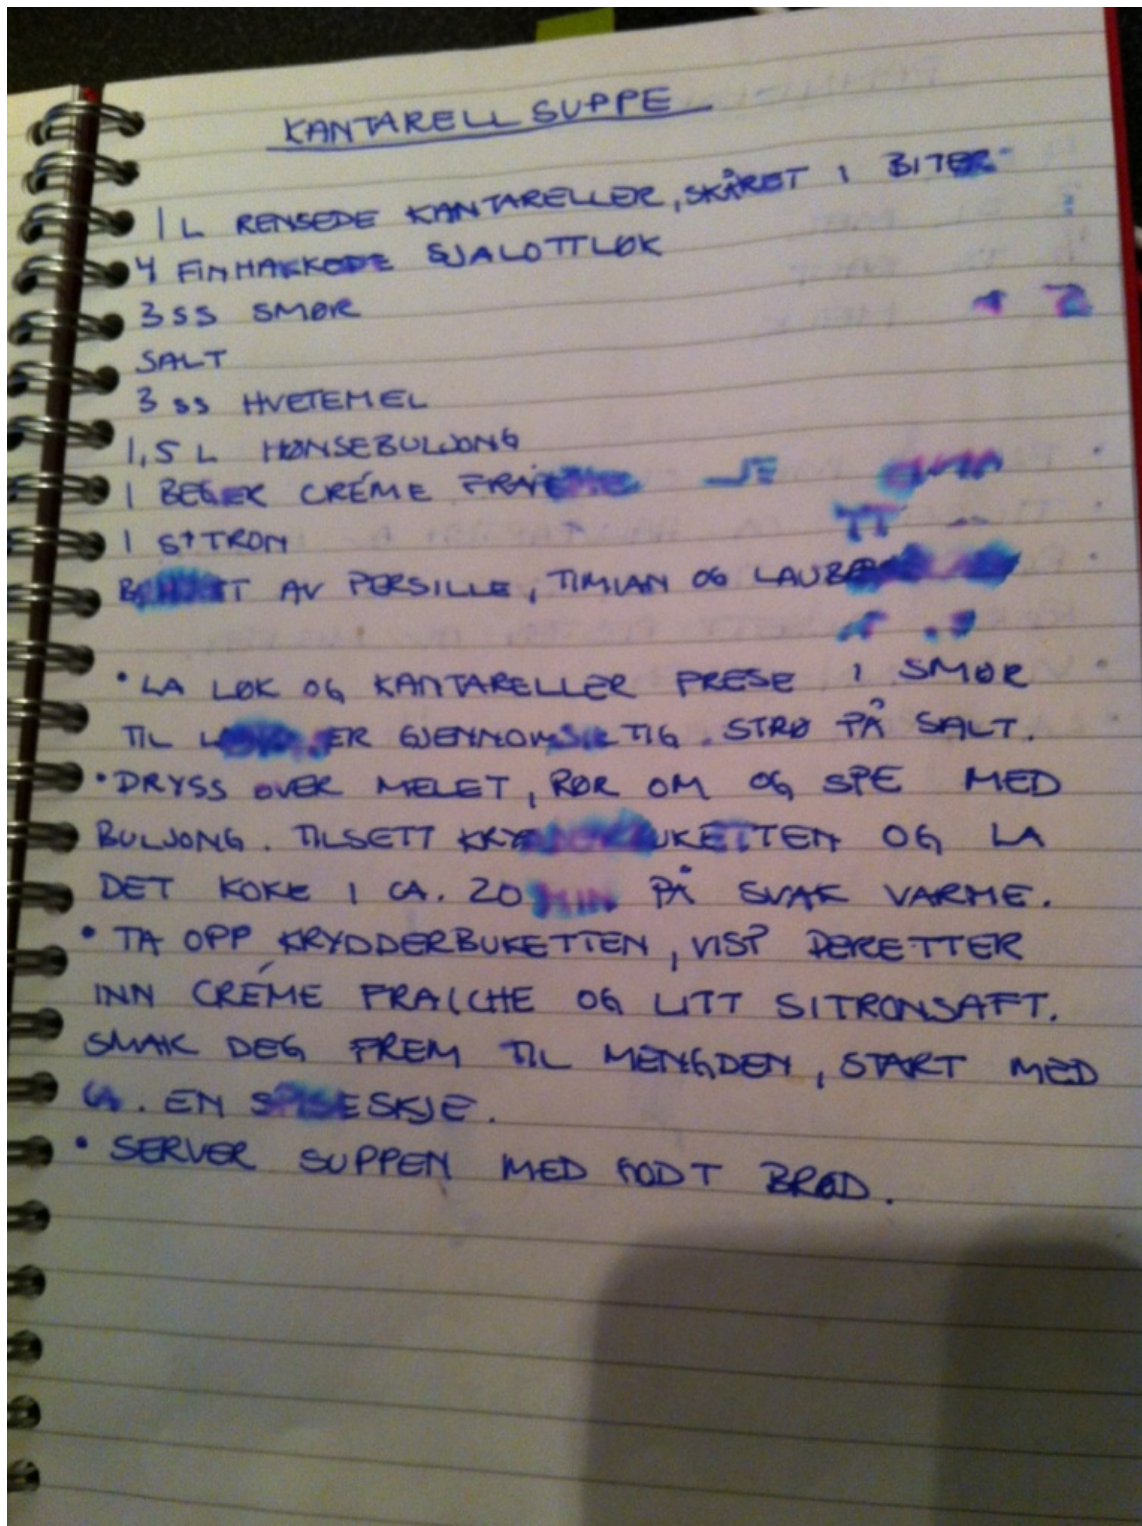 KANTARELLSUPPE
1 L RENSEDE KANTARELLER, SKÅRET I BITER
4 FINHAKKEDE SJALOTTLØK
3 SS SMØR
SALT
3 SS HVETEMEL
1,5 L HØNSEBULJONG
1 BEGER CRÉME
1 SITRON
AV PERSILLE, TIMIAN OG
• LA LØK OG KANTARELLER FRESE I SMØR
TIL ER GJENNOMSIKTIG. STRØ PÅ SALT.
• DRYSS OVER MELET, RØR OM OG SPE MED
BULJONG. TILSETT KRYDDERBUKETTEN OG LA
DET KOKE I CA. 20 MIN PÅ SVAK VARME.
• TA OPP KRYDDERBUKETTEN, VISP DERETTER
INN CRÉME FRAICHE OG LITT SITRONSAFT.
SMAK DEG FREM TIL MENGDEN, START MED
CA. EN SPISESKJE.
• SERVER SUPPEN MED GODT BRØD.